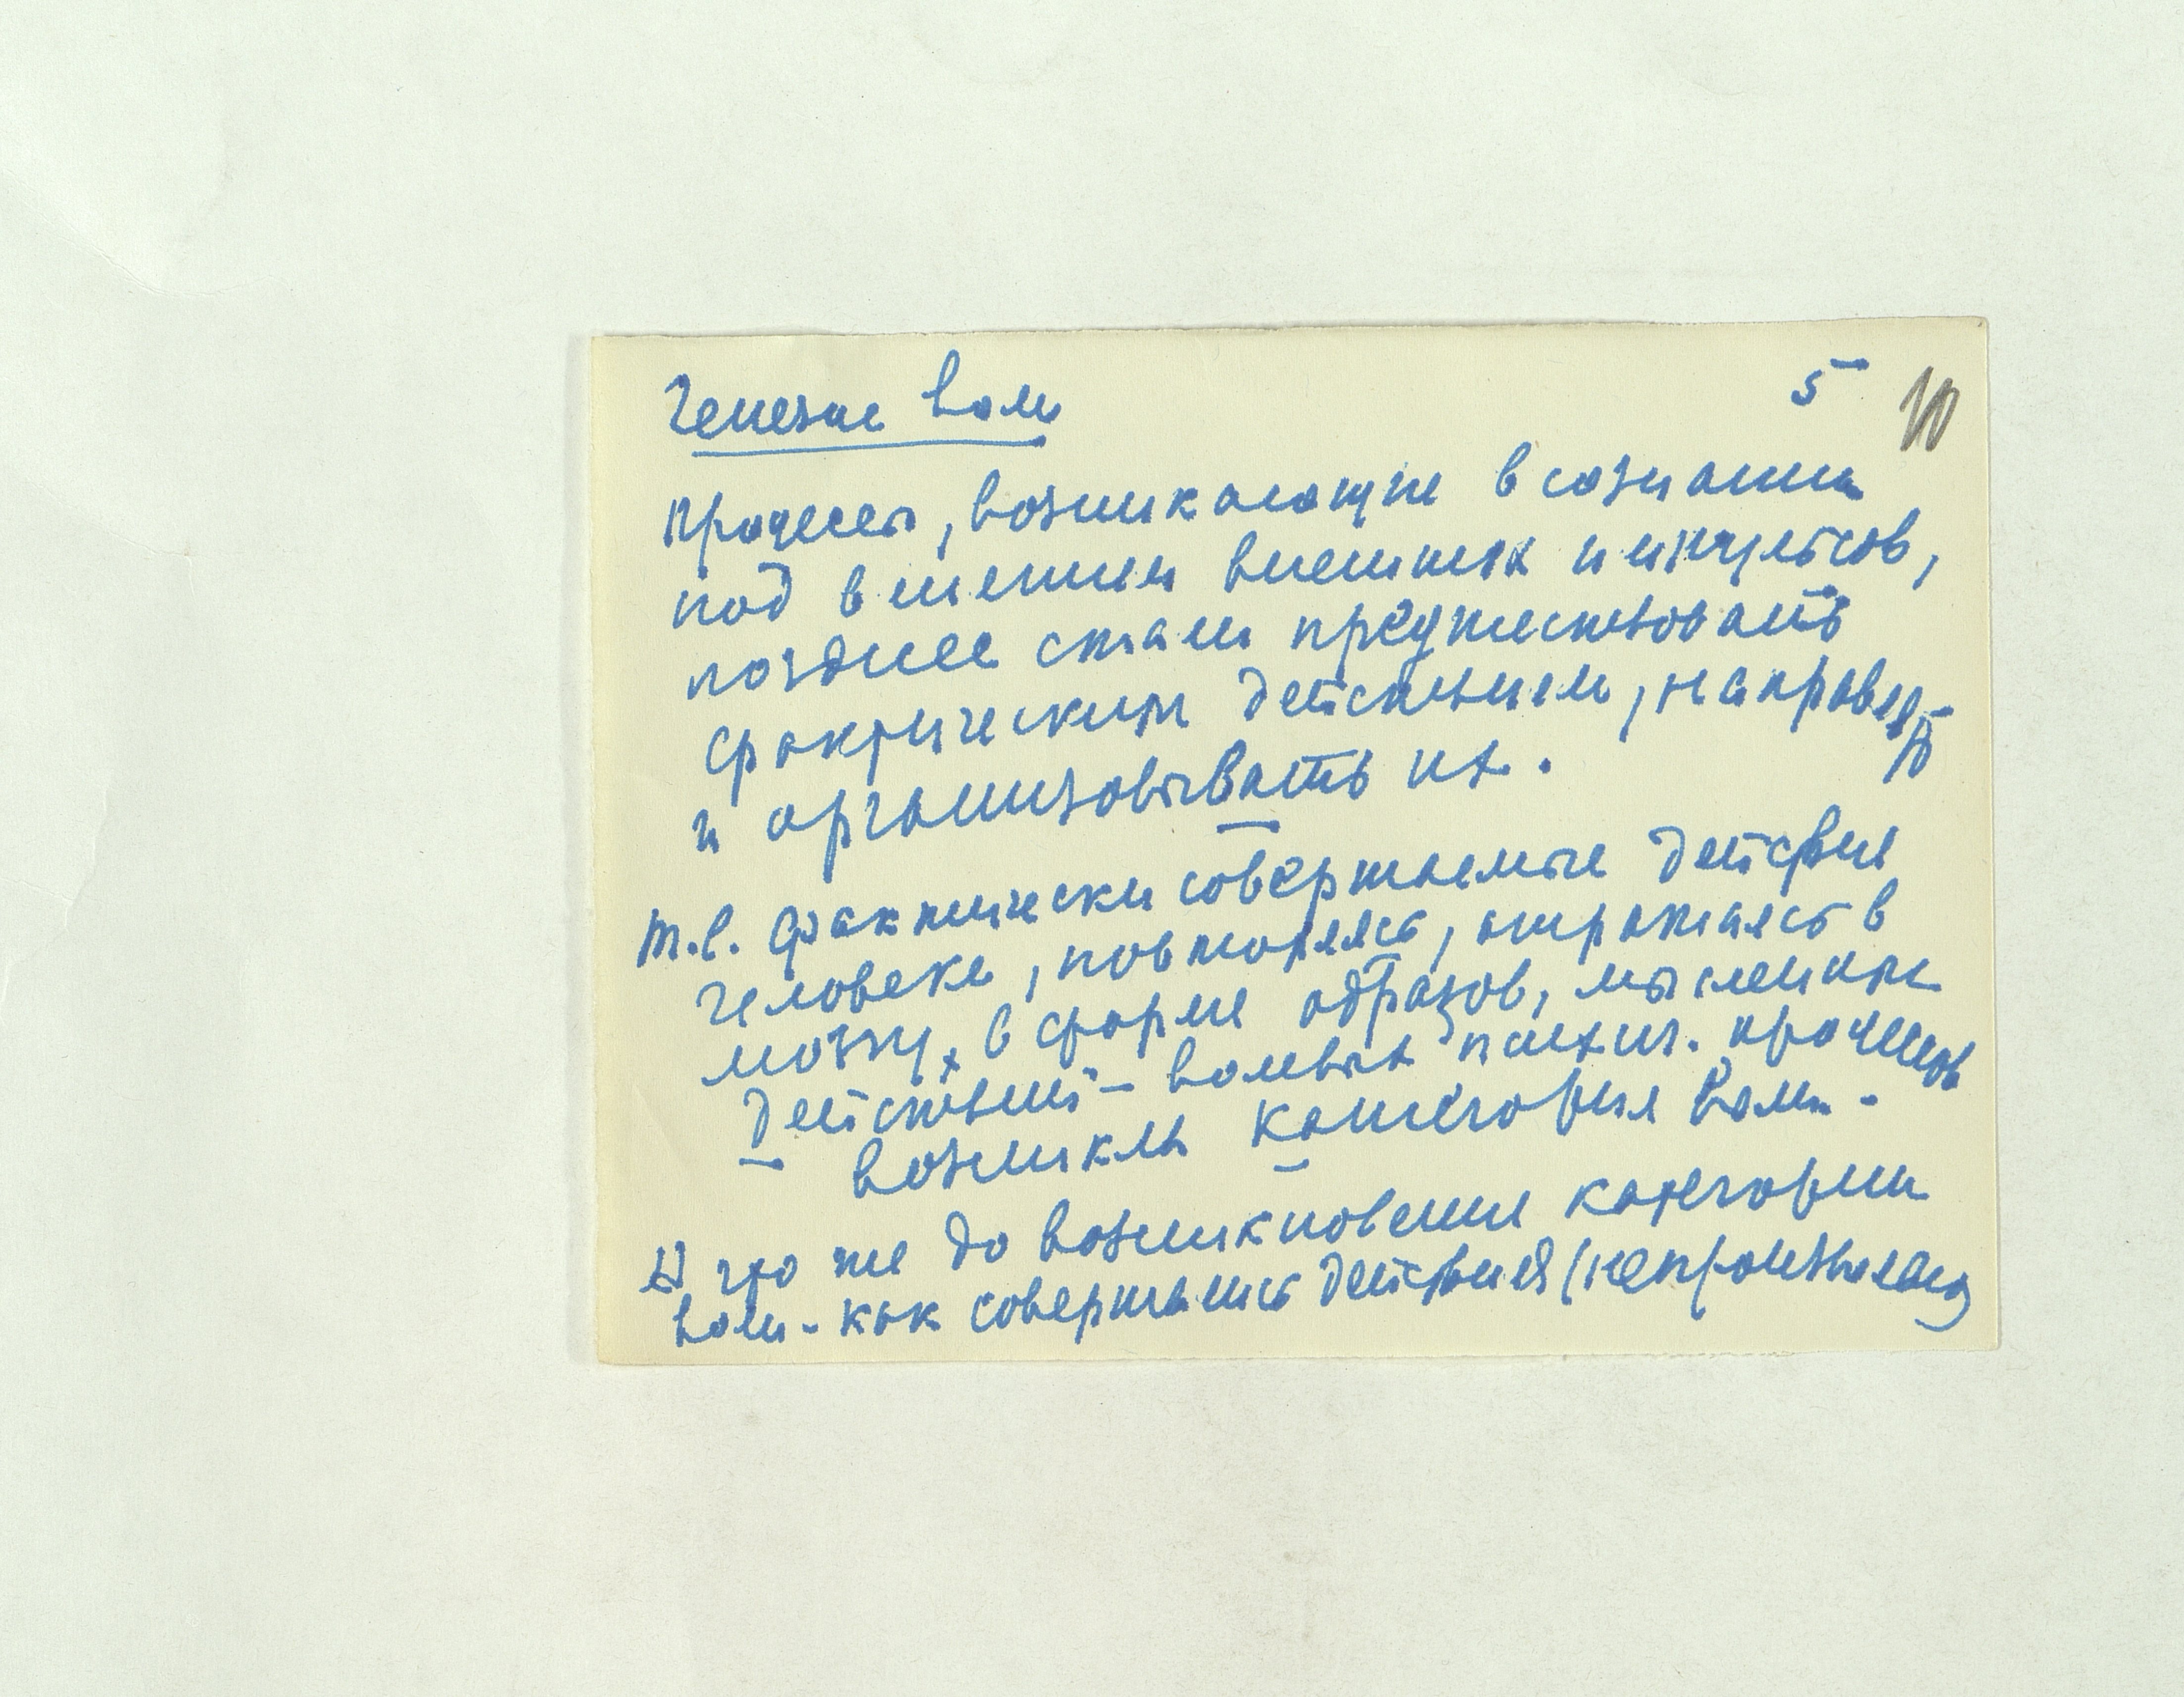 Генезис воли 5 10
процессы, возникающие в сознании
под влиянием внешних импульсов,
позднее стали предшествовать
фактическим действиям, направлять
и организовывать их.
т.е. фактически совершаемые действия
человека, повторяясь, отражаясь в
мозгу, в форме образов, мысленных
действий - волевых психич. процессов
возникла категория воли.
А что же до возникновения категории
воли - как совершались действия (непроизвольно)